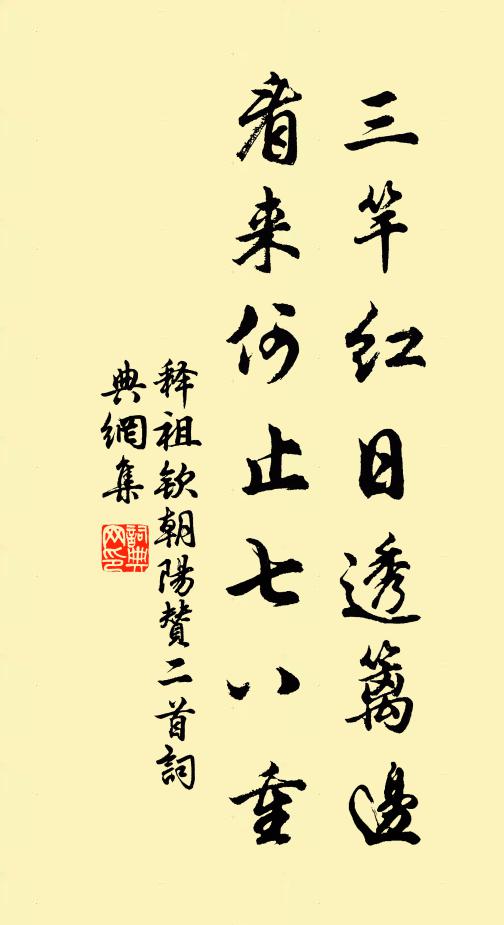 三竿红日透篱邊
看来何止七八重
释祖钦朝陽赞二首詞
典網集
詞典
网印